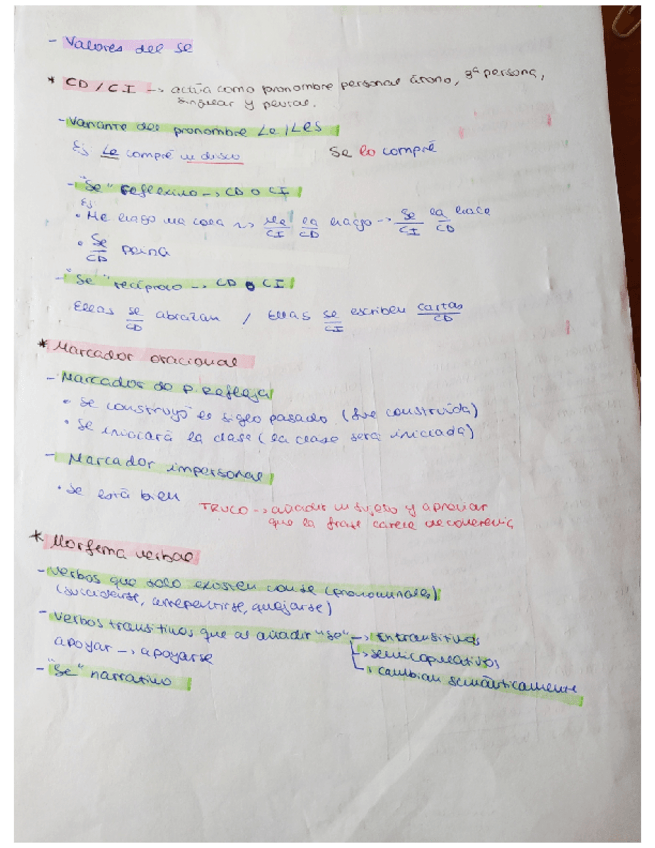 - Valores del se
* CD / CI -> actúa como pronombre personal átono, 3ª persona,
singular y plural.
- Variante del pronombre Le / Les
Ej Le compré un disco    Se lo compré
- "Se" reflexivo -> CD o CI
Ej
• Me hago una casa -> Me la hago -> Se la hace
CI CD CI CD
• Se peina
CD
- "Se" recíproco -> CD o CI
Ellas se abrazan / Ellas se escriben cartas
CD CI CD
* Marcador oracional
- Marcador de P. Refleja
• Se construyó el siglo pasado (fue construida)
• Se iniciará la clase (la clase será iniciada)
- Marcador impersonal
• Se está bien
TRUCO -> añadir un sujeto y apreciar
que la frase carece de coherencia
* Morfema verbal
- Verbos que solo existen con se (pronominales)
(suicidarse, arrepentirse, quejarse)
- Verbos transitivos que al añadir "se" -> intransitivos
apoyar -> apoyarse -> semicopulativos
-> cambian semánticamente
- "Se" narrativo